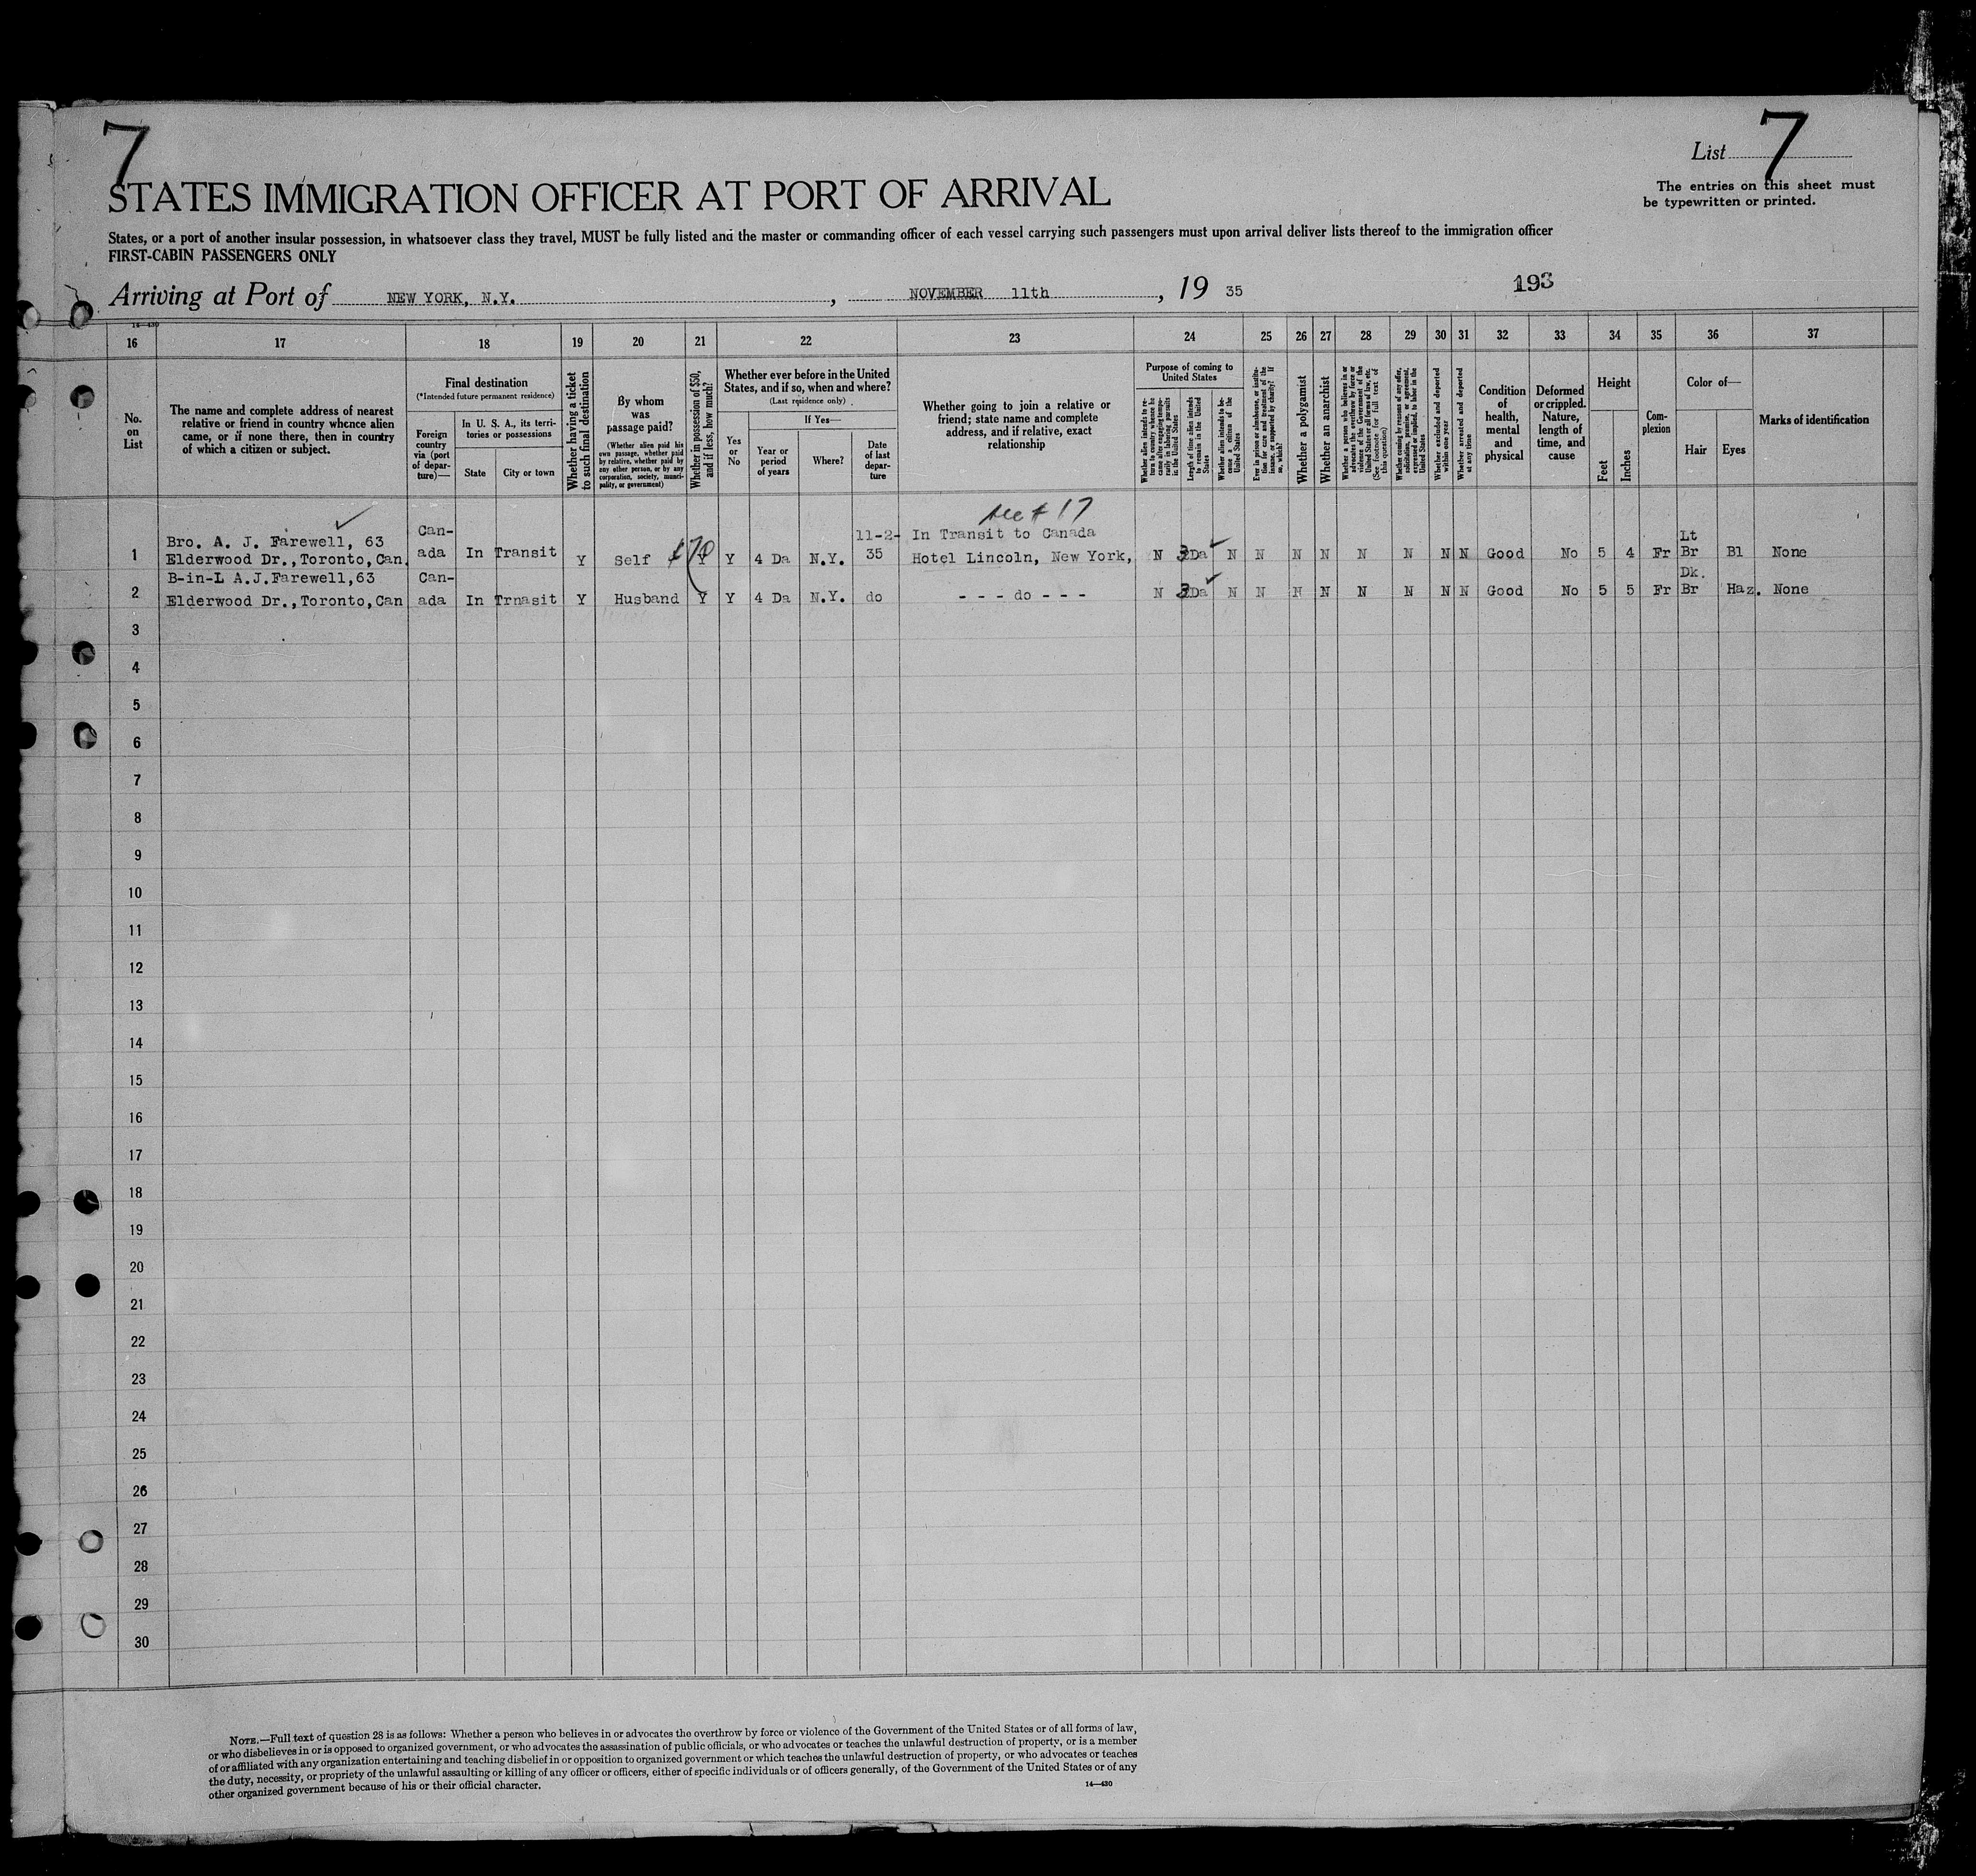 7
List 7
STATES IMMIGRATION OFFICER AT PORT OF ARRIVAL
The entries on this sheet must
be typewritten or printed.
States, or a port of another insular possession, in whatsoever class they travel, MUST be fully listed and the master or commanding officer of each vessel carrying such passengers must upon arrival deliver lists thereof to the immigration officer
FIRST-CABIN PASSENGERS ONLY
Arriving at Port of NEW YORK, N.Y. , NOVEMBER 11th , 19 35
193
14—430
16 17 18 19 20 21 22 23 24 25 26 27 28 29 30 31 32 33 34 35 36 37
No.
on
List
The name and complete address of nearest
relative or friend in country whence alien
came, or if none there, then in country
of which a citizen or subject.
Final destination
(*Intended future permanent residence)
Foreign
country
via (port
of depar-
ture)—
In U. S. A., its terri-
tories or possessions
State
City or town
Whether having a ticket
to such final destination
By whom
was
passage paid?
(Whether alien paid his
own passage, whether paid
by relative, whether paid by
any other person, or by any
corporation, society, munici-
pality, or government)
Whether in possession of $50,
and if less, how much?
Whether ever before in the United
States, and if so, when and where?
(Last residence only)
Yes
or
No
If Yes—
Year or
period
of years
Where?
Date
of last
depar-
ture
Whether going to join a relative or
friend; state name and complete
address, and if relative, exact
relationship
Purpose of coming to
United States
Whether alien intends to re-
turn to country whence he
came after engaging tempo-
rarily in laboring pursuits
in the United States
Length of time alien intends
to remain in the United
States
Whether alien intends to be-
come a citizen of the
United States
Ever in prison or almshouse, or institu-
tion for care and treatment of the
insane, or supported by charity? If
so, which?
Whether a polygamist
Whether an anarchist
Whether a person who believes in or
advocates the overthrow by force or
violence of the Government of the
United States or all forms of law, etc.
(See footnote for full text of
this question)
Whether coming by reasons of any offer,
solicitation, promise, or agreement,
expressed or implied, to labor in the
United States
Whether excluded and deported
within one year
Whether arrested and deported
at any time
Condition
of
health,
mental
and
physical
Deformed
or crippled.
Nature,
length of
time, and
cause
Height
Feet
Inches
Com-
plexion
Color of—
Hair
Eyes
Marks of identification
17
1 Bro. A. J. Farewell, 63
Elderwood Dr.,Toronto,Can.
Can-
ada
In Transit Y Self 70 Y Y 4 Da N.Y.
11-2-
35
In Transit to Canada
Hotel Lincoln, New York,
N 3 Da N N N N N N N N Good No 5 4 Fr
Lt
Br
Bl None
2 B-in-L A.J.Farewell,63
Elderwood Dr.,Toronto,Can
Can-
ada
In Trnasit Y Husband Y Y 4 Da N.Y. do - - - do - - - N 3 Da N N N N N N N N Good No 5 5 Fr
Dk.
Br
Haz. None
3
4
5
6
7
8
9
10
11
12
13
14
15
16
17
18
19
20
21
22
23
24
25
26
27
28
29
30
NOTE.—Full text of question 28 is as follows: Whether a person who believes in or advocates the overthrow by force or violence of the Government of the United States or of all forms of law,
or who disbelieves in or is opposed to organized government, or who advocates the assassination of public officials, or who advocates or teaches the unlawful destruction of property, or is a member
of or affiliated with any organization entertaining and teaching disbelief in or opposition to organized government or which teaches the unlawful destruction of property, or who advocates or teaches
the duty, necessity, or propriety of the unlawful assaulting or killing of any officer or officers, either of specific individuals or of officers generally, of the Government of the United States or of any
other organized government because of his or their official character.
14—430